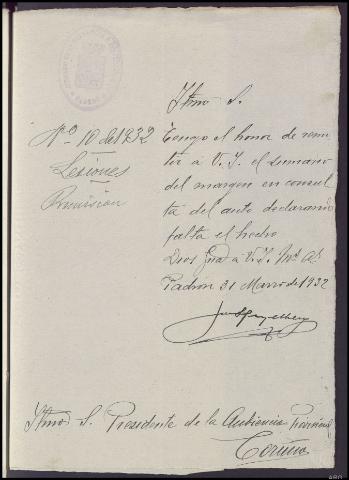 Iltmo S.
Nº 10 de 1932
Lesiones
Remisión
Tengo el honor de remi
tir a V. I. el sumario
del margen en consul
ta del auto declarando
falta el hecho
Dios Gue a V. I. Ms As
Padrón 31 Marzo de 1932
Iltmo S. Presidente de la Audiencia Provincial
Coruña